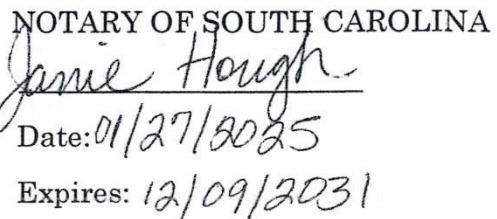 NOTARY OF SOUTH CAROLINA
Janie Hough
Date: 01/27/2025
Expires: 12/09/2031